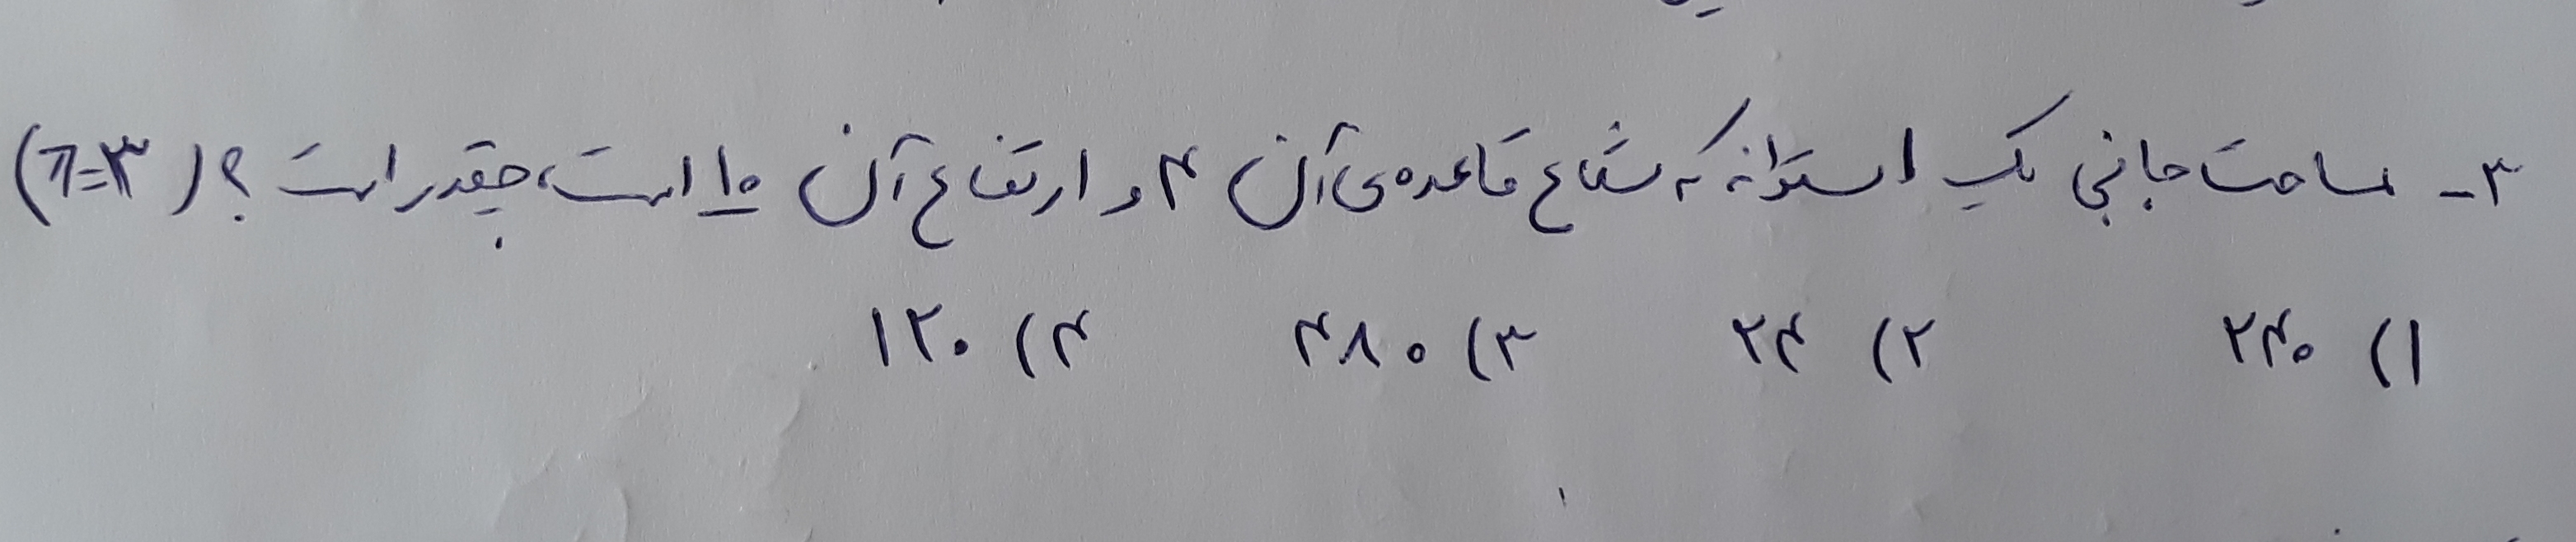 ۳- مساحت جانبی یک استوانه که شعاع قاعده‌ی آن ۴ و ارتفاع آن ۱۰ است، چقدر است؟ (π=۳)
۱) ۲۴۰ ۲) ۲۴ ۳) ۴۸۰ ۴) ۱۲۰